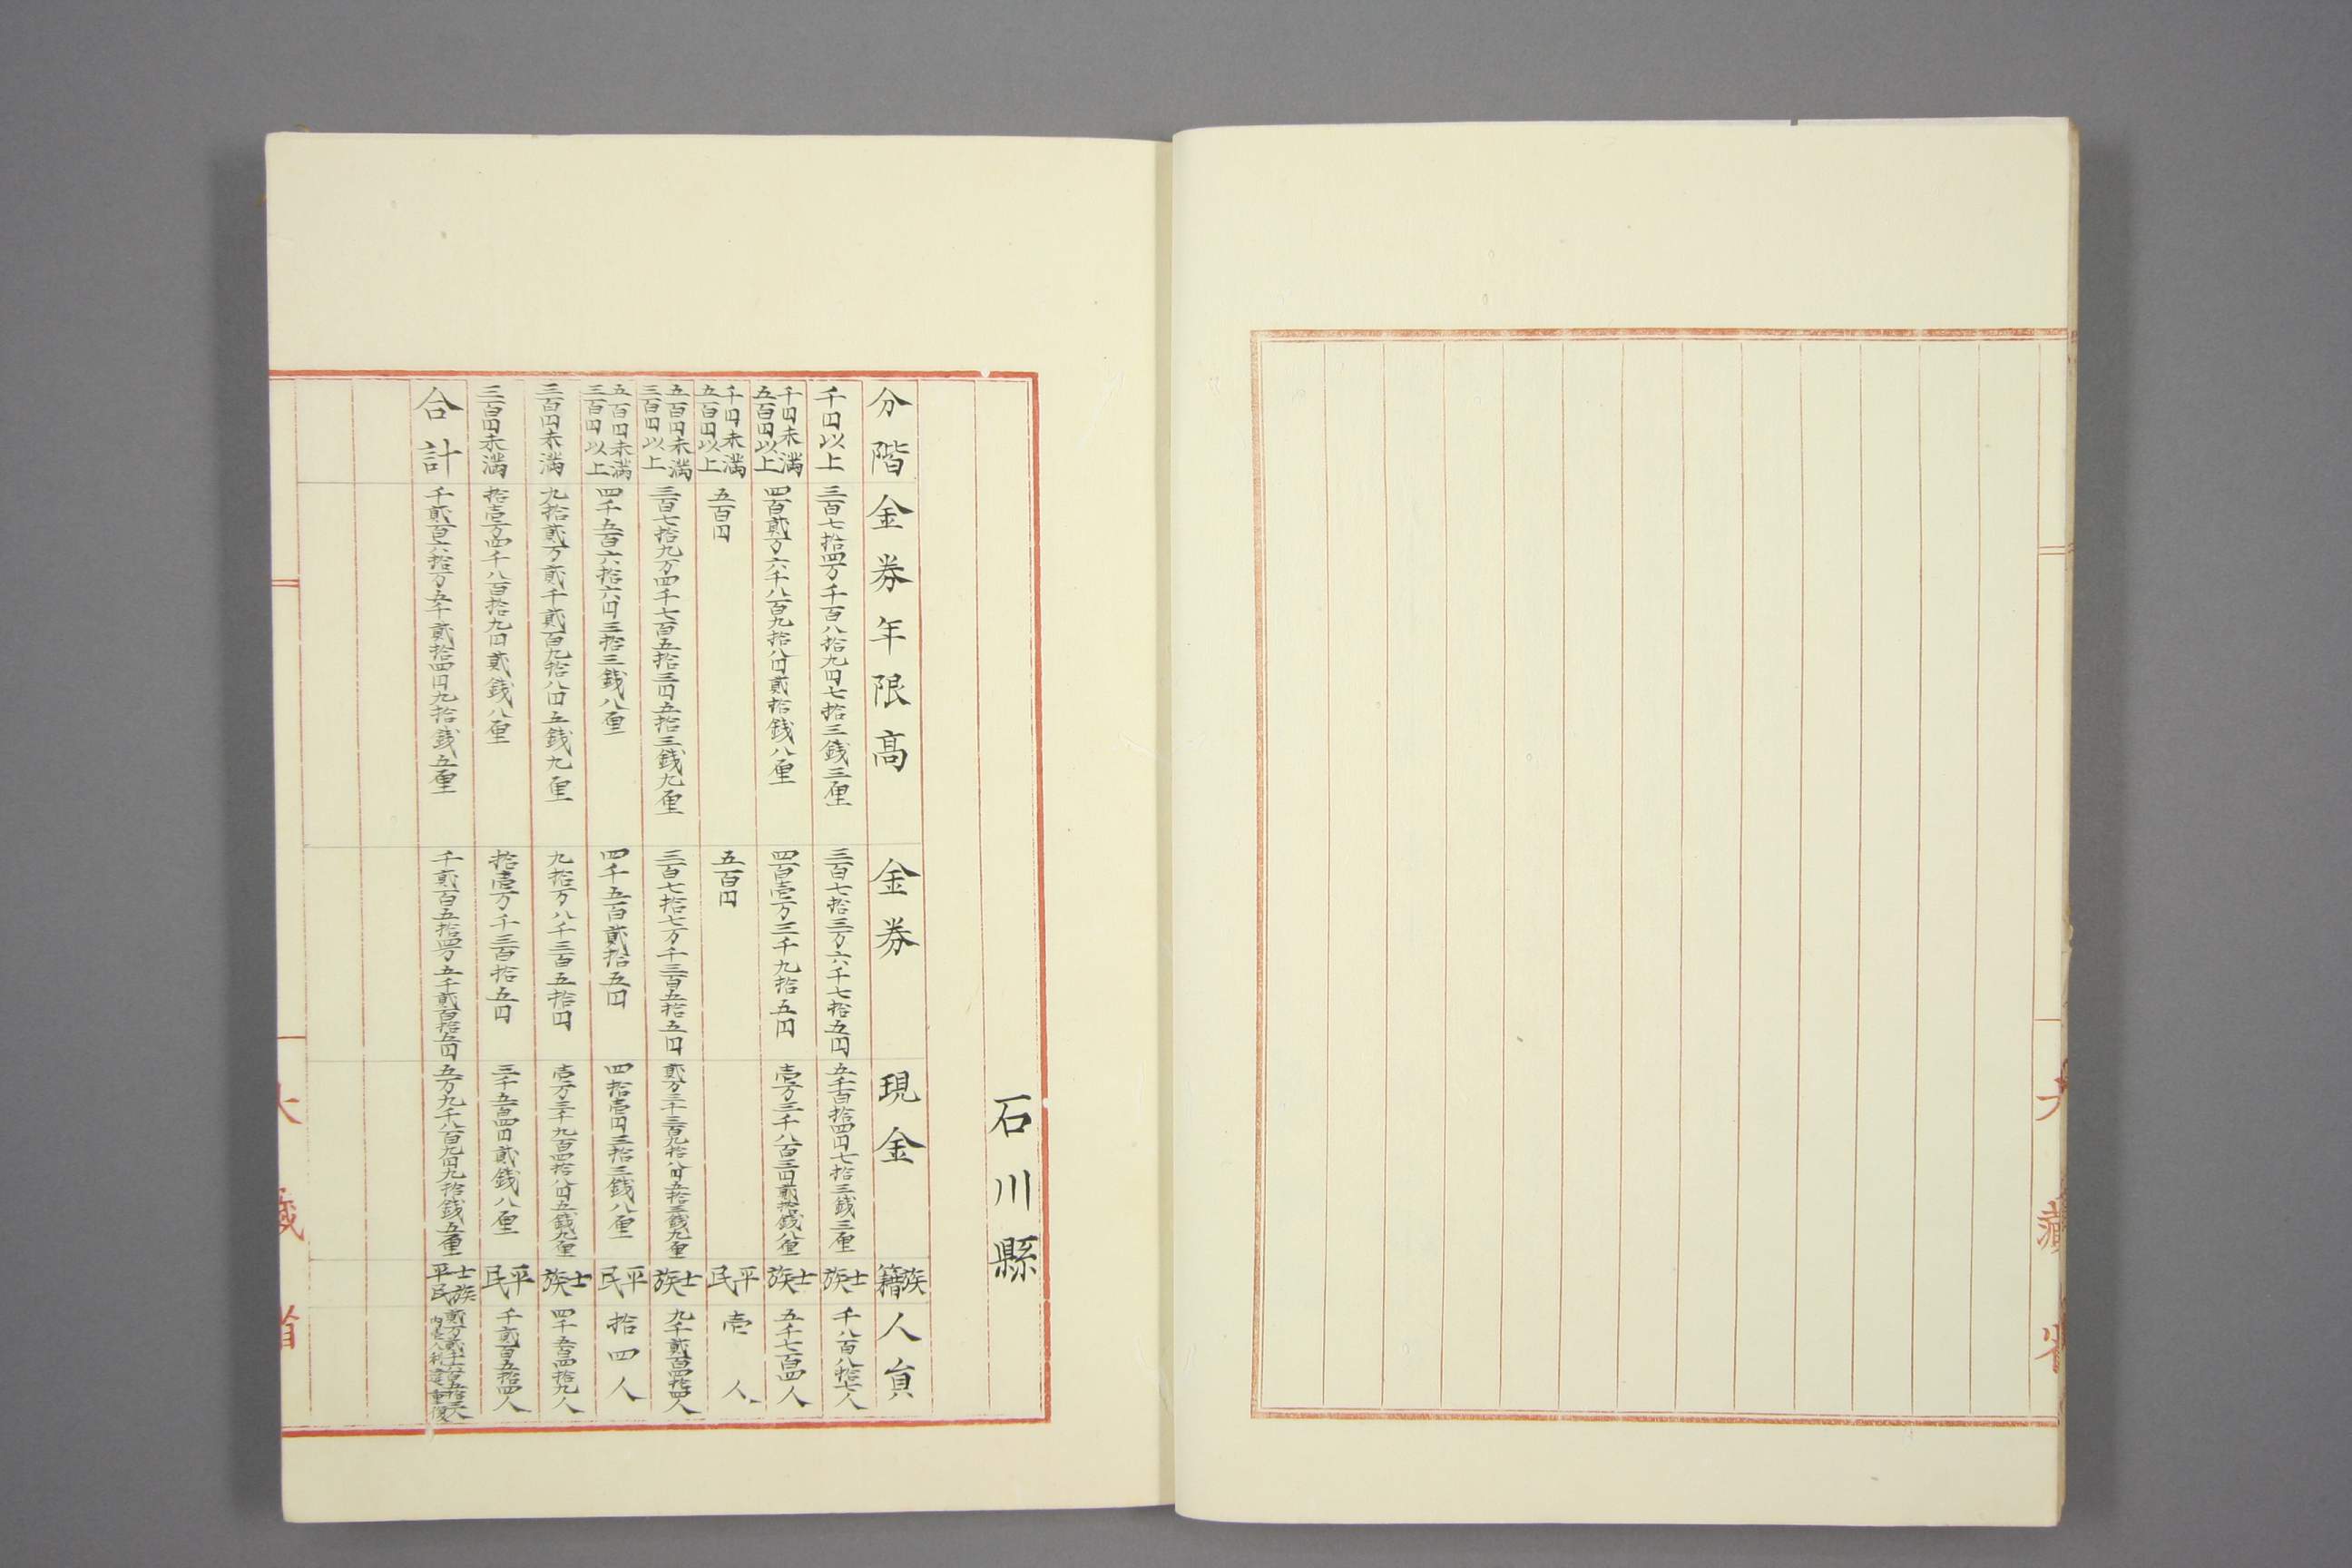 石川縣
分階 金券年限高 金券 現金 族籍 人員
千円以上 三百七拾四万千百八拾九円七拾三銭三厘 三百七拾三万六千七拾五円 五千百拾四円七拾三銭三厘 士族 千八百八拾七人
千円未満五百円以上 四百貳万六千八百九拾八円貳拾銭八厘 四百壱万三千九拾五円 壱万三千八百三円貳拾銭八厘 士族 五千七百四人
千円未満五百円以上 五百円 五百円 平民 壱人
五百円未満三百円以上 三百七拾九万四千七百五拾三円五拾三銭九厘 三百七拾七万千三百五拾五円 貳万三千三百九拾八円五拾三銭九厘 士族 九千貳百四拾四人
五百円未満三百円以上 四千五百六拾六円三拾三銭八厘 四千五百貳拾五円 四拾壱円三拾三銭八厘 平民 拾四人
三百円未満 九拾貳万貳千貳百九拾八円五銭九厘 九拾万八千三百五拾円 壱万三千九百四拾八円五銭九厘 士族 四千五百四拾九人
三百円未満 拾壱万四千八百拾九円貳銭八厘 拾壱万千三百拾五円 三千五百四円貳銭八厘 平民 千貳百五拾四人
合計 千貳百六拾万五千貳拾四円九拾銭五厘 千貳百五拾四万五千貳百拾五円 五万九千八百九円九拾銭五厘 士族平民
大藏省